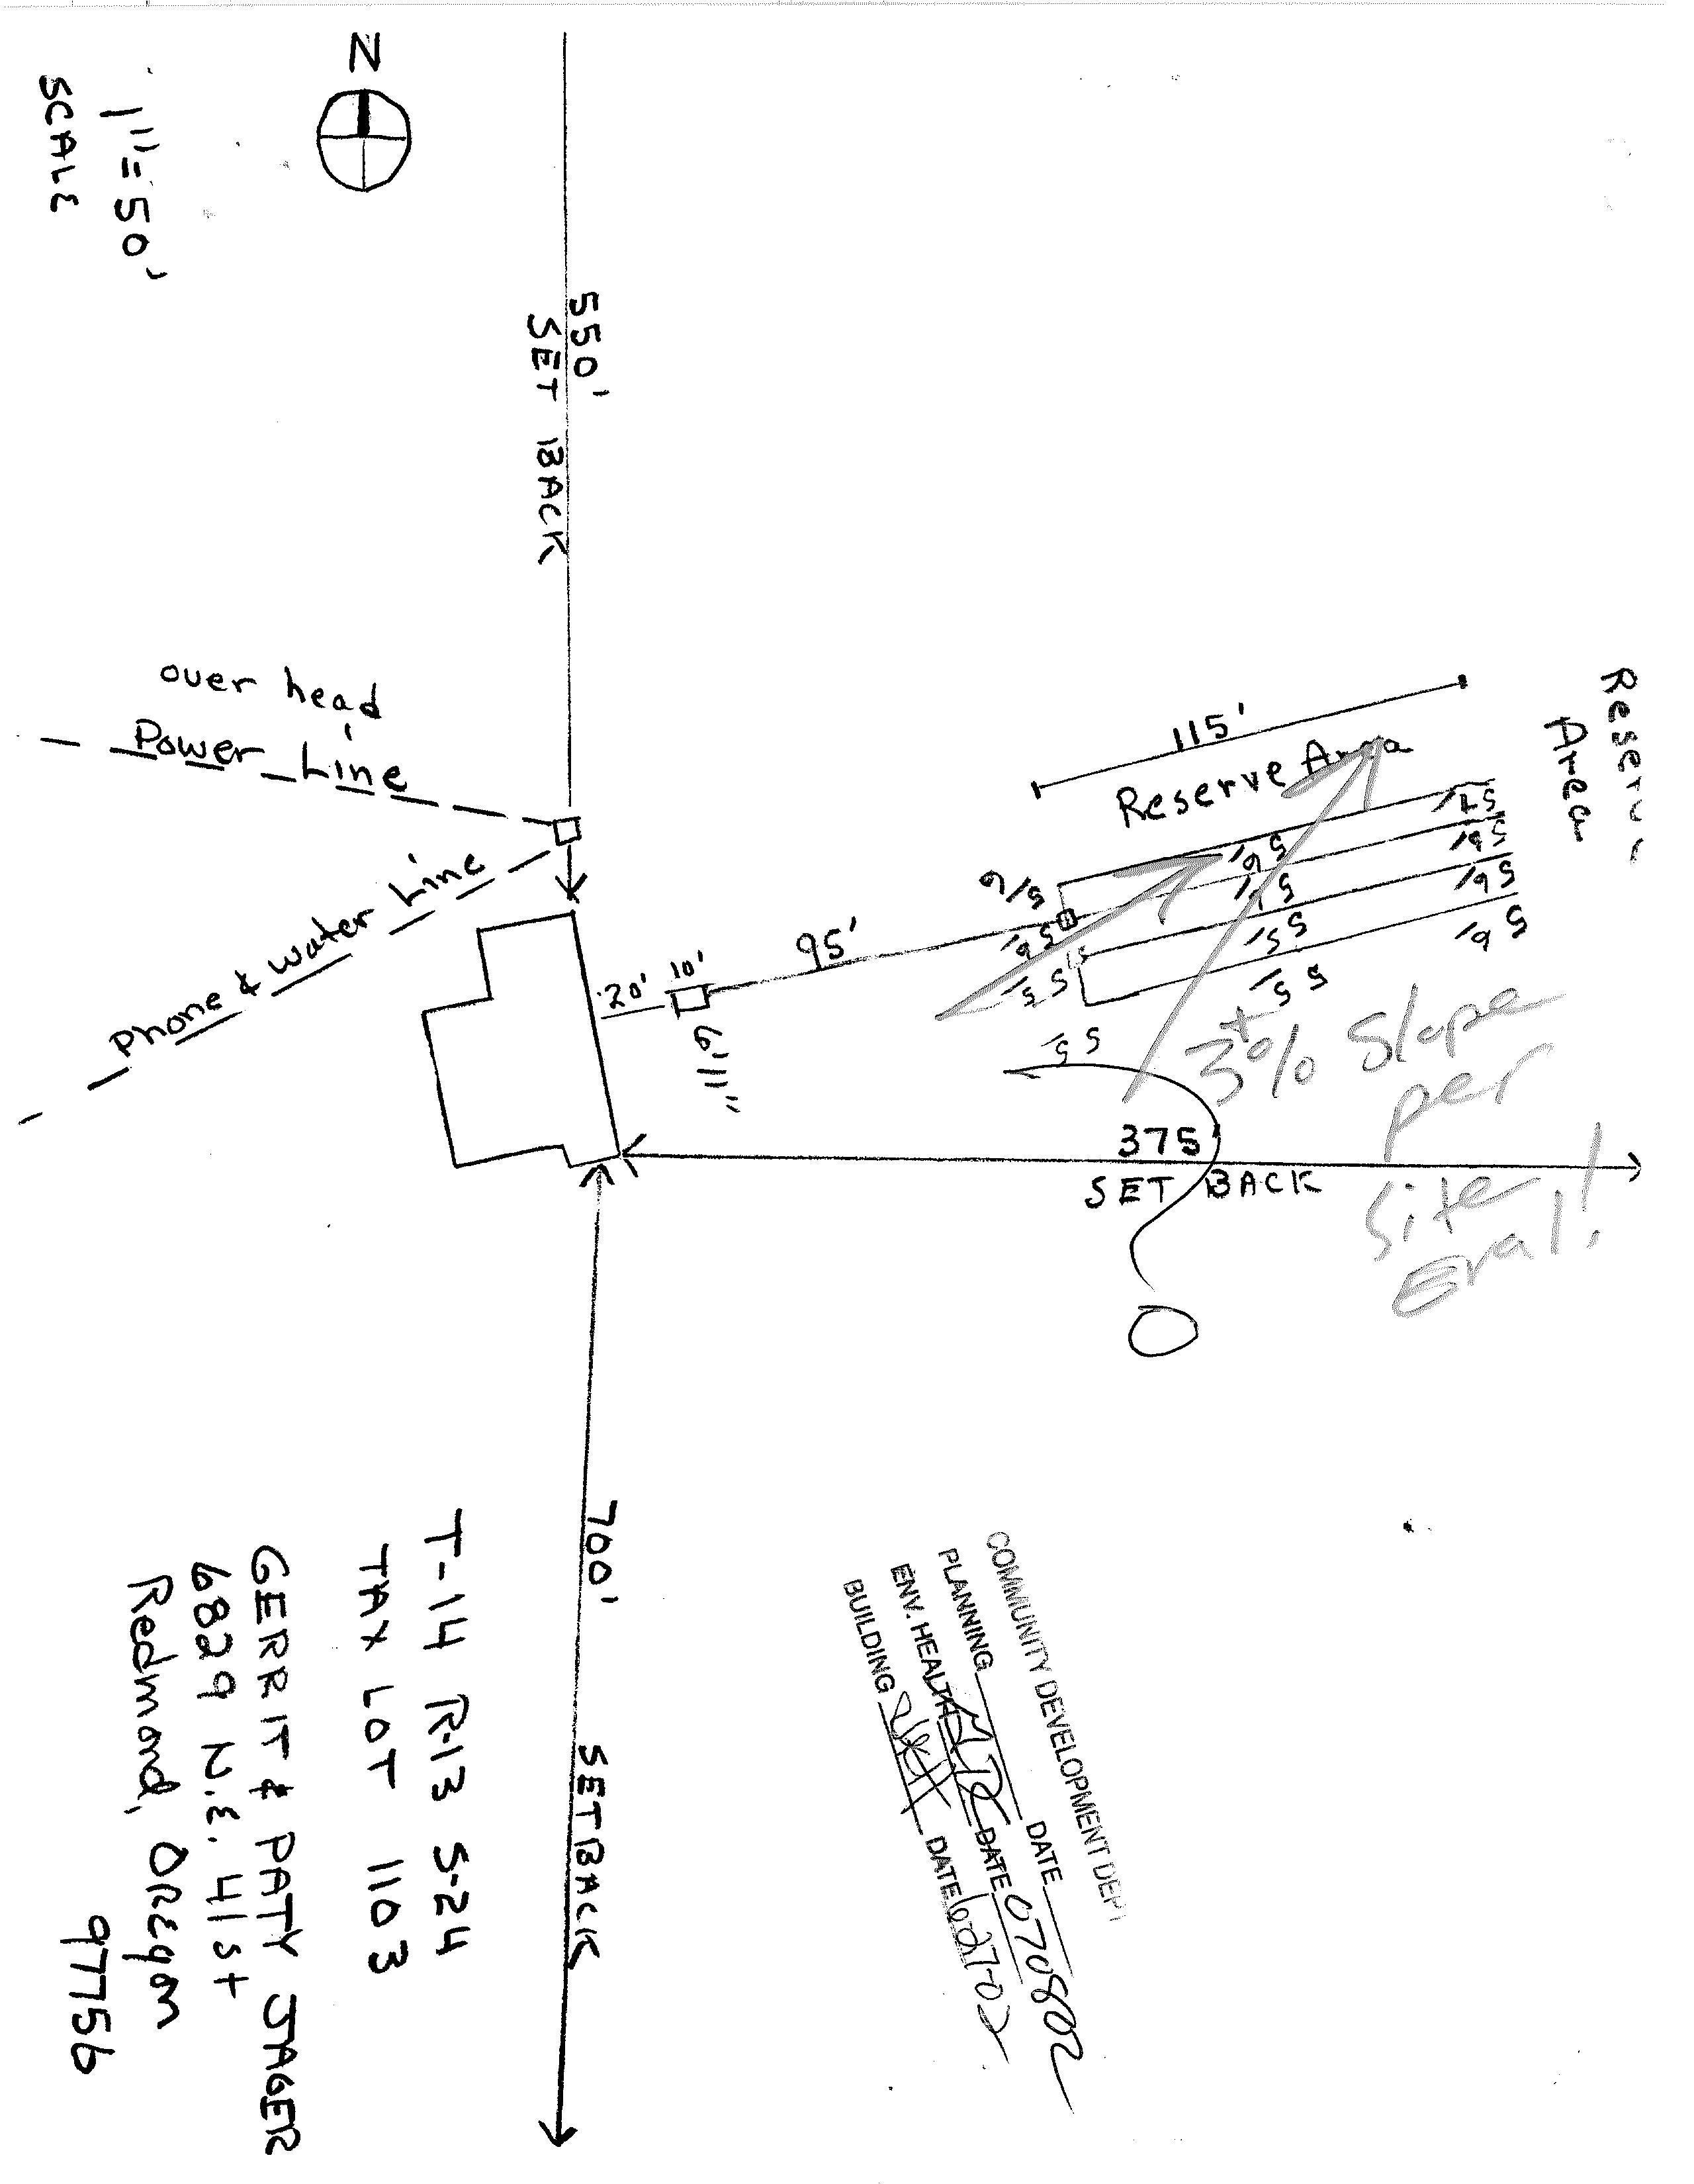 N
1" = 50'
SCALE
550'
SET BACK
over head
Power Line
Phone & Water Line
20'
10'
6'11"
95'
115'
Reserve Area
Reserve
Area
3% Slope
per
Site
Eval!
375'
SET BACK
700'
SETBACK
T-14 R-13 S-24
TAX LOT 1103
GERRIT & PATY JAGER
6829 N.E. 41st
Redmond, OREgon
97756
COMMUNITY DEVELOPMENT DEPT
PLANNING DATE
ENV. HEALTH DATE 070802
BUILDING DATE